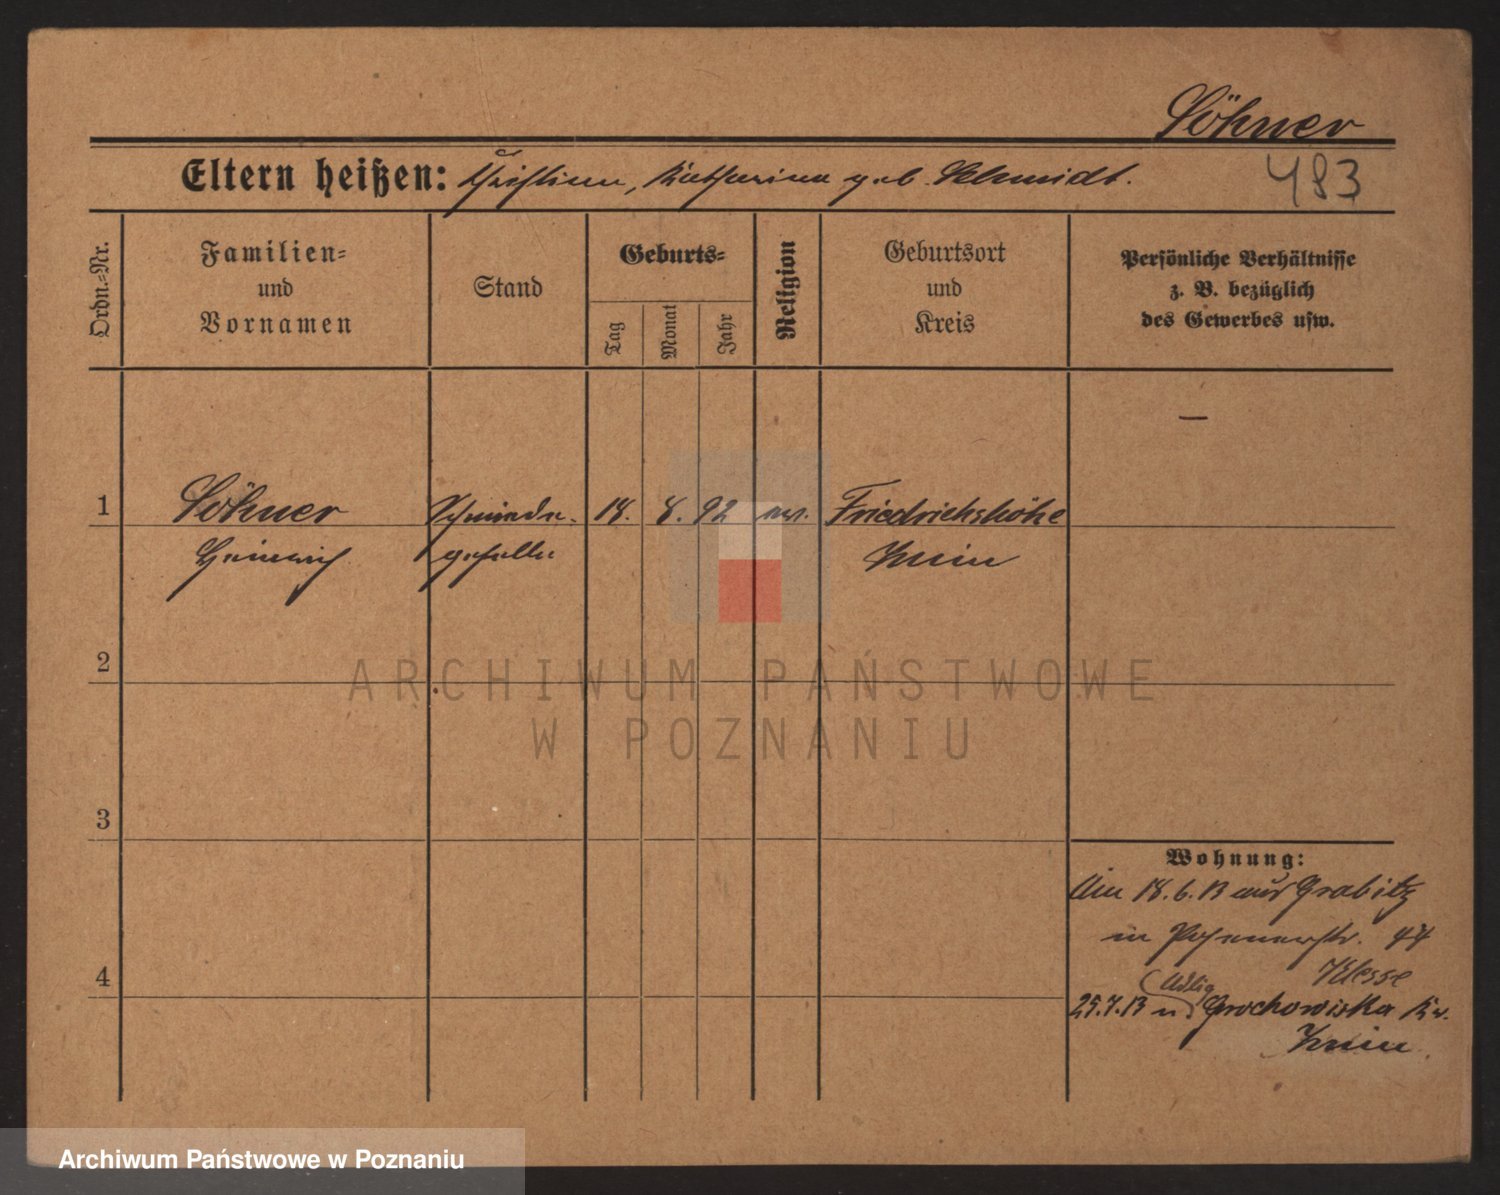 Söhner
Eltern heißen: Christian, Katharina geb. Schmidt.
483
Ordn.-Nr.
Familien-
und
Vornamen
Stand
Geburts-
Tag
Monat
Jahr
Religion
Geburtsort
und
Kreis
Persönliche Verhältnisse
z. B. bezüglich
des Gewerbes usw.
—
1 Söhner Schmiede- 18. 8. 92 ev. Friedrichshöhe
Heinrich geselle Znin
2
3
4
ARCHIWUM PAŃSTWOWE
W POZNANIU
Wohnung:
Am 18.6.13 aus Grabitz
in Posenerstr. 44
Klesse
(Adlig)
25.7.13 n. Grochowiska Kr.
Znin
Archiwum Państwowe w Poznaniu